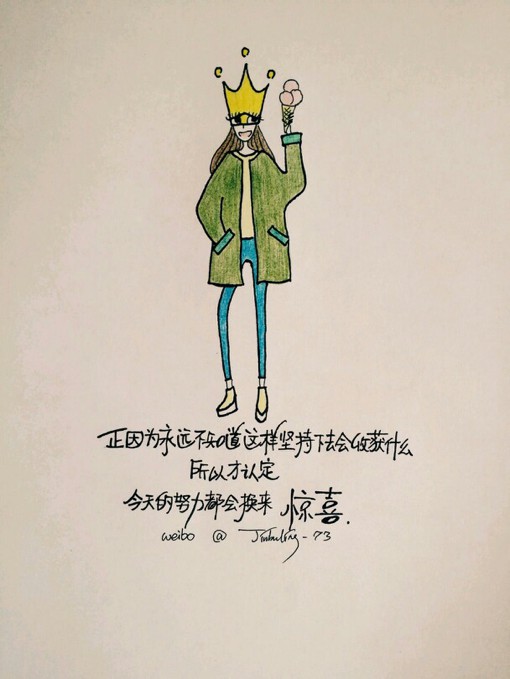 正因为永远不知道这样坚持下去会收获什么
所以才认定
今天的努力都会换来 惊喜.
weibo @ -73